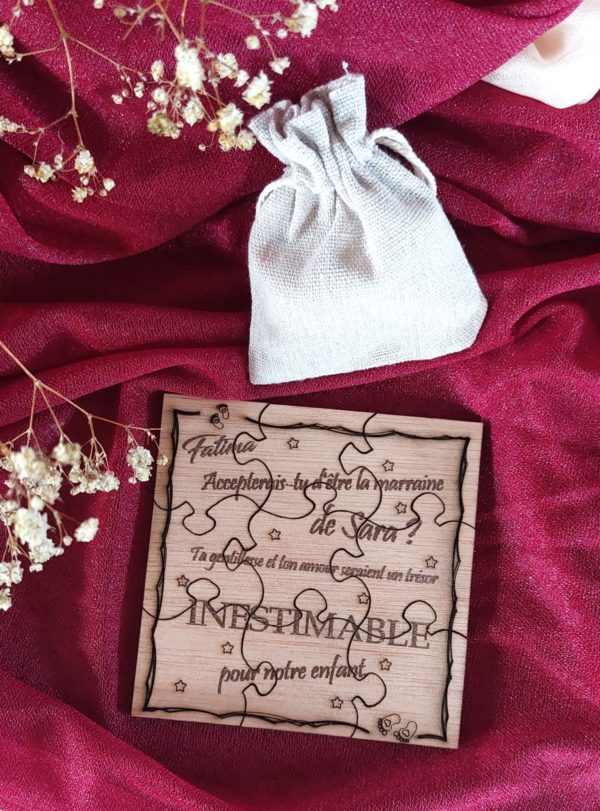 Fatima
Accepterais-tu d'être la marraine
de Sara ?
Ta gentillesse et ton amour seraient un trésor
INESTIMABLE
pour notre enfant